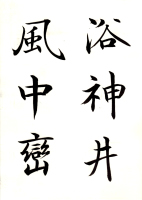 浴神井
風中巒